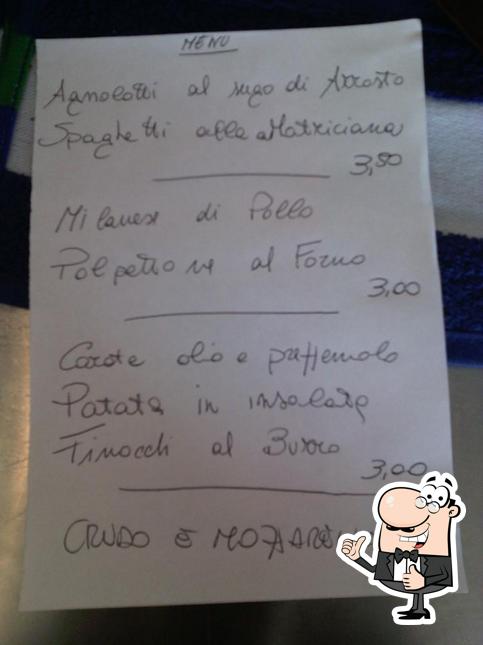 MENU
Agnolotti al sugo di Arrosto
Spaghetti alla Matriciana
3,50
Milanese di Pollo
Polpettone al Forno
3,00
Carote olio e prezzemolo
Patate in insalata
Finocchi al Burro
3,00
CRUDO E